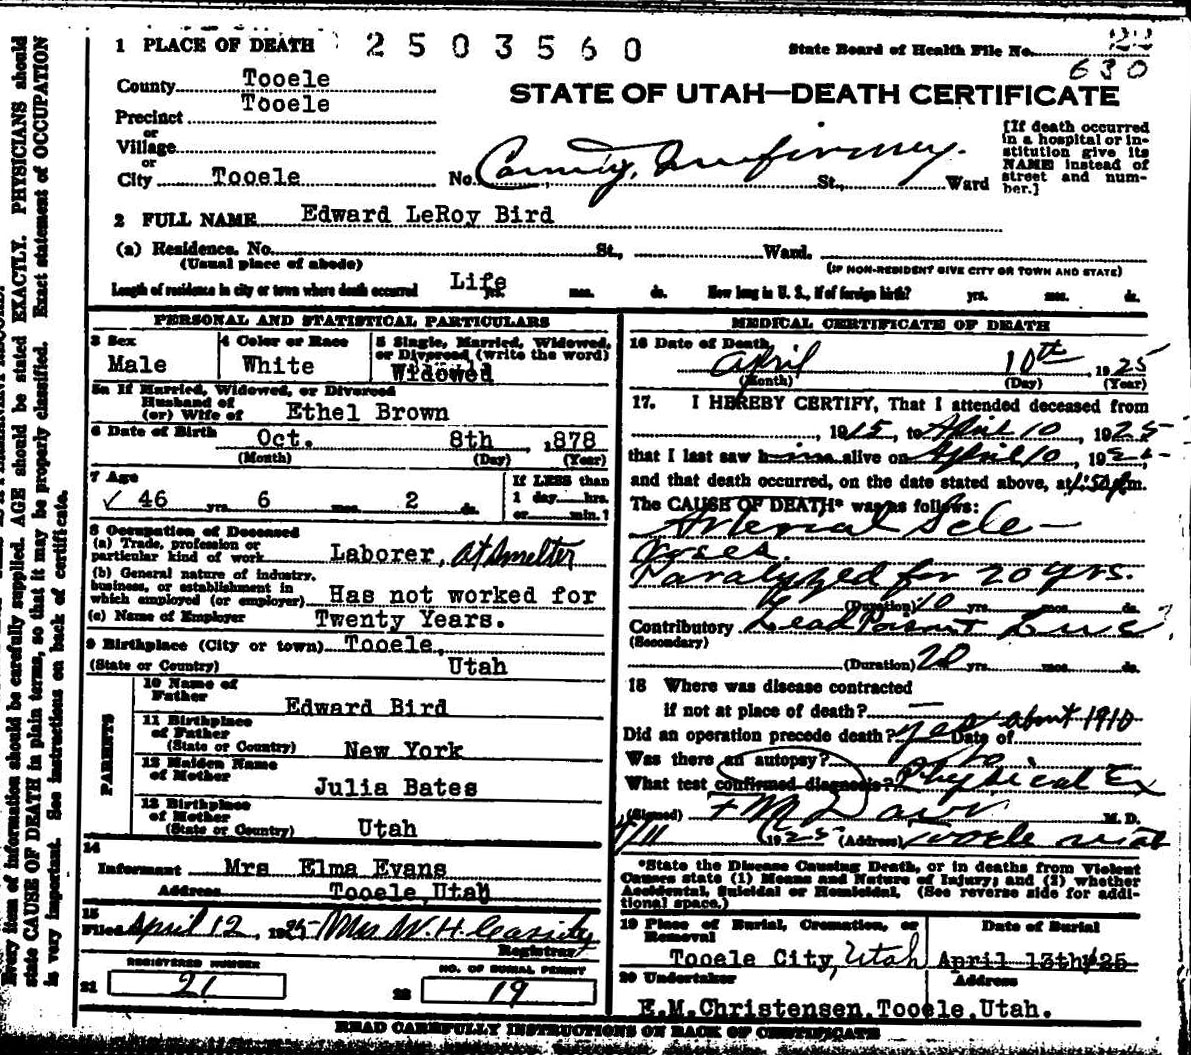 1 PLACE OF DEATH 2503560 State Board of Health File No. 22
630
County Tooele
STATE OF UTAH—DEATH CERTIFICATE
Precinct Tooele
or
Village
or
City Tooele No. County Infirmary. St., Ward
[If death occurred
in a hospital or in-
stitution give its
NAME instead of
street and num-
ber.]
2 FULL NAME Edward LeRoy Bird
(a) Residence. No. St., Ward.
(Usual place of abode) (IF NON-RESIDENT GIVE CITY OR TOWN AND STATE)
Length of residence in city or town where death occurred Life yrs. mos. ds. How long in U. S., if of foreign birth? yrs. mos. ds.
PERSONAL AND STATISTICAL PARTICULARS
3 Sex 4 Color or Race 5 Single, Married, Widowed,
or Divorced (write the word)
Male White Widowed
5a If Married, Widowed, or Divorced
Husband of
(or) Wife of Ethel Brown
6 Date of Birth Oct. 8th ,878
(Month) (Day) (Year)
7 Age
✓ 46 yrs. 6 mos. 2 ds.
If LESS than
1 day hrs.
or min.?
8 Occupation of Deceased
(a) Trade, profession or
particular kind of work Laborer, At Smelter
(b) General nature of industry,
business, or establishment in
which employed (or employer) Has not worked for
(c) Name of Employer Twenty Years.
9 Birthplace (City or town) Tooele,
(State or Country) Utah
PARENTS
10 Name of
Father Edward Bird
11 Birthplace
of Father
(State or Country) New York
12 Maiden Name
of Mother Julia Bates
13 Birthplace
of Mother
(State or Country) Utah
14
Informant Mrs Elma Evans
Address Tooele, Utah
15
Filed April 12, 1925 Mrs W. H. Cassity
Registrar
REGISTERED NUMBER NO. OF BURIAL PERMIT
21 21 22 19
MEDICAL CERTIFICATE OF DEATH
16 Date of Death
April 10th 1925
(Month) (Day) (Year)
17. I HEREBY CERTIFY, That I attended deceased from
, 1915, to April 10, 1925
that I last saw him alive on April 10, 192
and that death occurred, on the date stated above, at m.
The CAUSE OF DEATH* was as follows:
Arterial Scle-
roses.
Paralyzed for 20 yrs.
(Duration) 10 yrs. mos. ds.
Contributory Lead
(Secondary)
(Duration) 20 yrs. mos. ds.
18 Where was disease contracted
if not at place of death? —
Did an operation precede death? yes Date of about 1910
Was there an autopsy? no
What test confirmed diagnosis? Physical Ex
(Signed) F M Davis M. D.
4/11 1925 (Address) Tooele Utah
*State the Disease Causing Death, or in deaths from Violent
Causes state (1) Means and Nature of Injury; and (2) whether
Accidental, Suicidal or Homicidal. (See reverse side for addi-
tional space.)
19 Place of Burial, Cremation, or Date of Burial
Removal
Tooele City, Utah April 13th 25
20 Undertaker Address
E.M.Christensen,Tooele,Utah.
READ CAREFULLY INSTRUCTIONS ON BACK OF CERTIFICATE
Every item of information should be carefully supplied. AGE should be stated EXACTLY. PHYSICIANS should
state CAUSE OF DEATH in plain terms, so that it may be properly classified. Exact statement of OCCUPATION
is very important. See instructions on back of certificate.